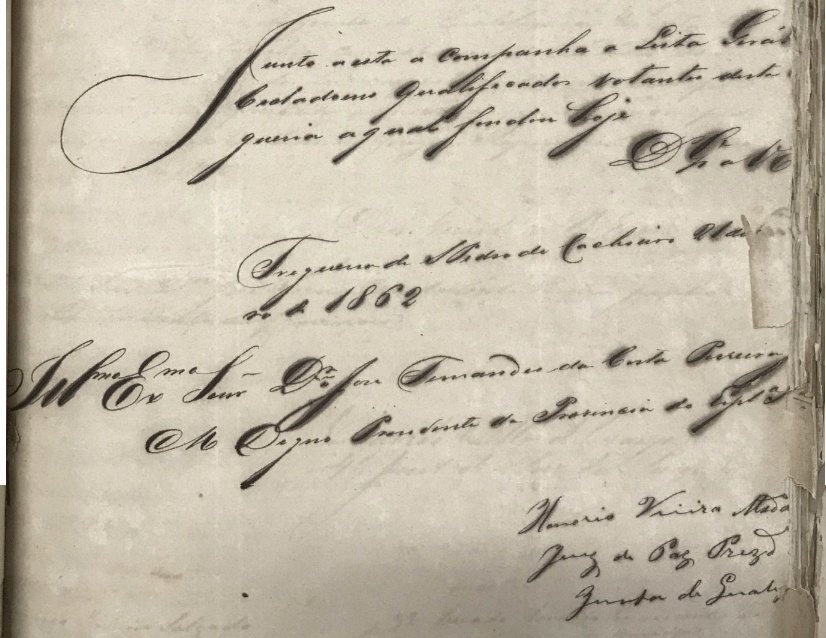 Junto a esta a companha a Lista Geral
Cidadoens qualificados votantes desta
guezia a qual findou hoje
Ds Ge a V E
Freguezia de S Pedro do Cachoeiro 21 de
ro de 1862
Illmo Exmo Senr Dr José Fernandes da Costa Pereira
M Digno Prezidente da Provincia do Esp to
Honorio Vieira Mach
Juiz de Paz Prezd
Junta de Quali